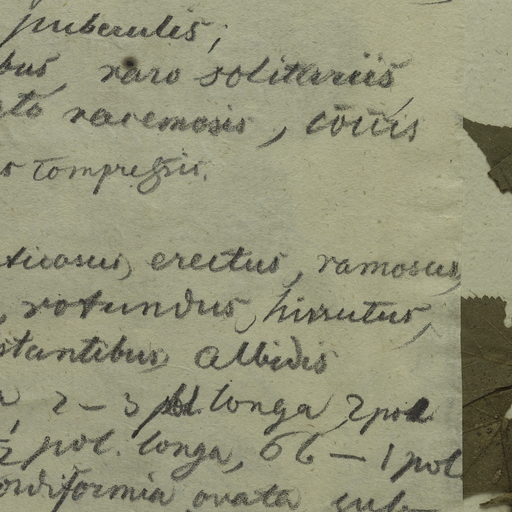 puberulis,
bus, raro solitariis,
ato racemosis, cōrris
s compressis.
ticosus, erectus, ramosus,
, rotundus, hirsutus,
stantibus, albidis
a, 2 – 3 pol. longa, 2 pol
½ pol. longa, – 1 pol
ordiformia ovata sub-